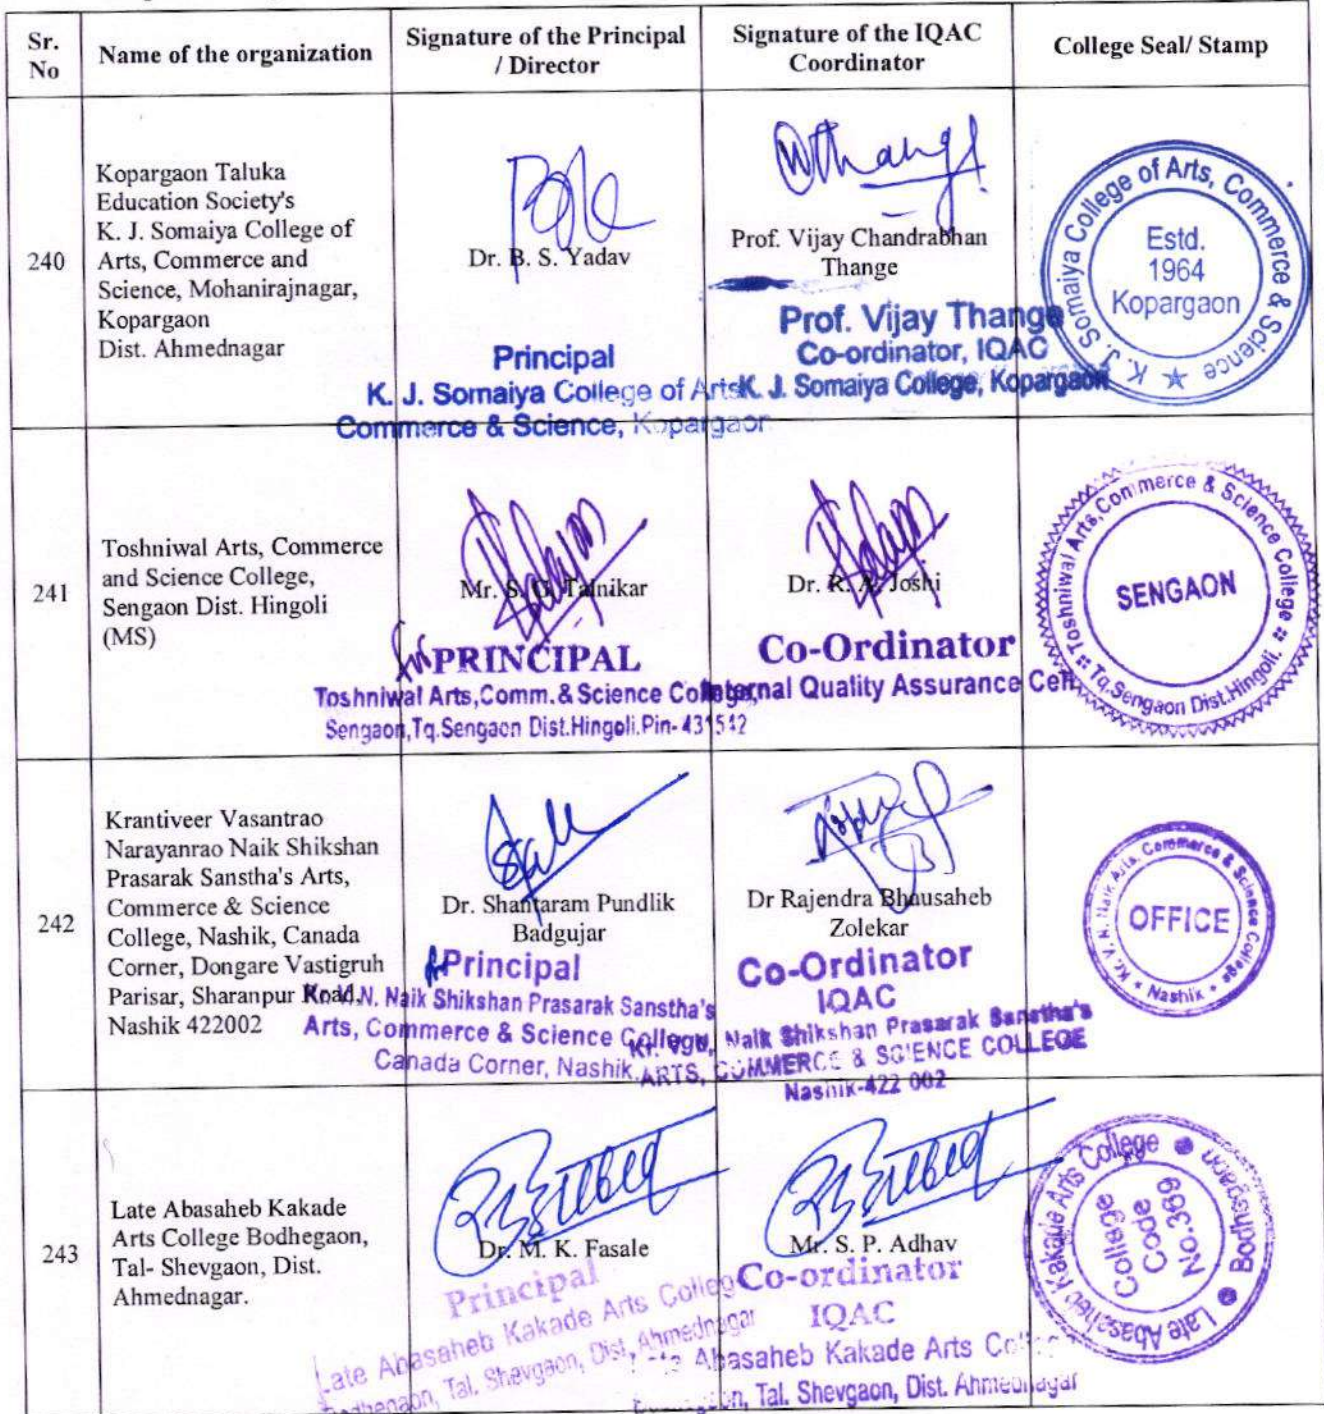 Sr.
No
Name of the organization
Signature of the Principal
/ Director
Signature of the IQAC
Coordinator
College Seal/ Stamp
240
Kopargaon Taluka
Education Society's
K. J. Somaiya College of
Arts, Commerce and
Science, Mohanirajnagar,
Kopargaon
Dist. Ahmednagar
Dr. B. S. Yadav
Principal
K. J. Somaiya College of Arts
Commerce & Science, Kopargaon
Prof. Vijay Chandrabhan
Thange
Prof. Vijay Thange
Co-ordinator, IQAC
K. J. Somaiya College, Kopargaon
K. J. Somaiya College of Arts, Commerce & Science
Estd.
1964
Kopargaon
241
Toshniwal Arts, Commerce
and Science College,
Sengaon Dist. Hingoli
(MS)
Mr. S. G. Talnikar
PRINCIPAL
Toshniwal Arts,Comm.& Science College,
Sengaon,Tq.Sengaon Dist.Hingoli.Pin-431542
Dr. R. A. Joshi
Co-Ordinator
Internal Quality Assurance Cell
Toshniwal Arts,Commerce & Science College
Tq.Sengaon Dist.Hingoli.
SENGAON
242
Krantiveer Vasantrao
Narayanrao Naik Shikshan
Prasarak Sanstha's Arts,
Commerce & Science
College, Nashik, Canada
Corner, Dongare Vastigruh
Parisar, Sharanpur Road,
Nashik 422002
Dr. Shantaram Pundlik
Badgujar
Principal
Kr. V.N. Naik Shikshan Prasarak Sanstha's
Arts, Commerce & Science College,
Canada Corner, Nashik.
Dr Rajendra Bhausaheb
Zolekar
Co-Ordinator
IQAC
Naik Shikshan Prasarak Sanstha's
ARTS, COMMERCE & SCIENCE COLLEGE
Nashik-422 002
Kr. V. N. Naik Arts, Commerce & Science College
Nashik
OFFICE
243
Late Abasaheb Kakade
Arts College Bodhegaon,
Tal- Shevgaon, Dist.
Ahmednagar.
Dr. M. K. Fasale
Principal
Late Abasaheb Kakade Arts College
Bodhegaon, Tal. Shevgaon, Dist. Ahmednagar
Mr. S. P. Adhav
Co-ordinator
IQAC
Late Abasaheb Kakade Arts College
Tal. Shevgaon, Dist. Ahmednagar
Late Abasaheb Kakade Arts College
Bodhegaon
College
Code
No.369